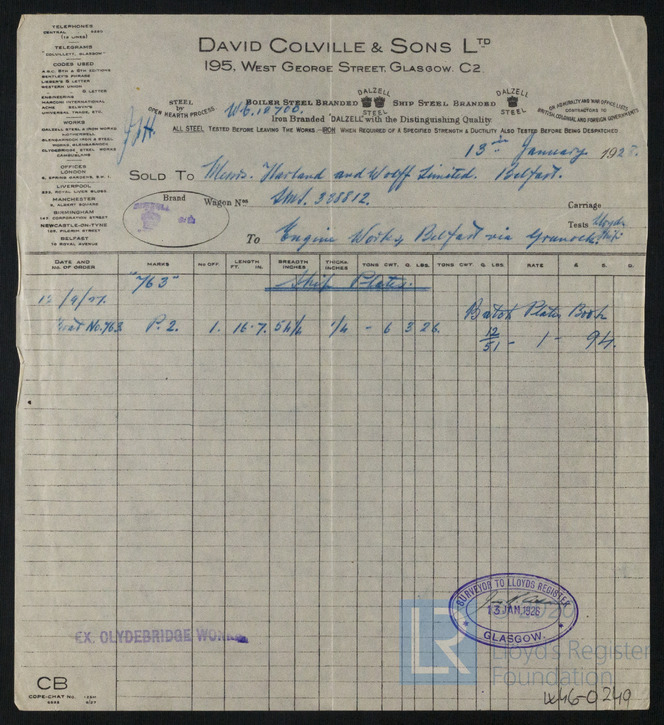 TELEPHONES
CENTRAL
(12 LINES)
TELEGRAMS
"COLVILLETT, GLASGOW"
CODES USED
A B C. 5TH & 6TH EDITIONS
BENTLEY'S PHRASE
LIEBER'S 5 LETTER
WESTERN UNION
5 LETTER
ENGINEERING
MARCONI INTERNATIONAL
UNIVERSAL TRADE, ETC.
WORKS
DALZELL STEEL & IRON WORKS
MOTHERWELL
GLENGARNOCK IRON & STEEL
WORKS, GLENGARNOCK
CLYDEBRIDGE STEEL WORKS
CAMBUSLANG
OFFICES
LONDON
LIVERPOOL
MANCHESTER
BIRMINGHAM
NEWCASTLE-ON-TYNE
BELFAST
DAVID COLVILLE & SONS LTD
195, WEST GEORGE STREET, GLASGOW. C2
STEEL
by
OPEN HEARTH PROCESS
BOILER STEEL BRANDED
DALZELL
STEEL
SHIP STEEL BRANDED
DALZELL
STEEL
Iron Branded "DALZELL" with the Distinguishing Quality
ON ADMIRALTY AND WAR OFFICE LISTS
CONTRACTORS TO
BRITISH, COLONIAL AND FOREIGN GOVERNMENTS
ALL STEEL TESTED BEFORE LEAVING THE WORKS — IRON WHEN REQUIRED OF A SPECIFIED STRENGTH & DUCTILITY ALSO TESTED BEFORE BEING DESPATCHED
13th January 1928.
SOLD TO Messrs. Harland and Wolff Limited. Belfast.
Brand
Wagon Nos LMS. 328812.
Carriage
Tests Lloyds
Ship
To Engine Works, Belfast via Greenock.
DATE AND No. OF ORDER MARKS No OFF. LENGTH FT. IN. BREADTH INCHES THICKN INCHES TONS CWT. Q. LBS. TONS CWT. Q. LBS. RATE £ S. D.
"763" Ship Plates.
12/9/27. Batch Plate Book
No. 763 P. 2. 1. 16-7. 54½ ¼ - 6 3 26. 12/51 - 1 - 94.
SURVEYOR TO LLOYDS REGISTER
13 JAN. 1928
GLASGOW.
EX. CLYDEBRIDGE WORKS
LR
© 2020
Lloyd's Register
Foundation
CB
COPE-CHAT No.
W46-0249